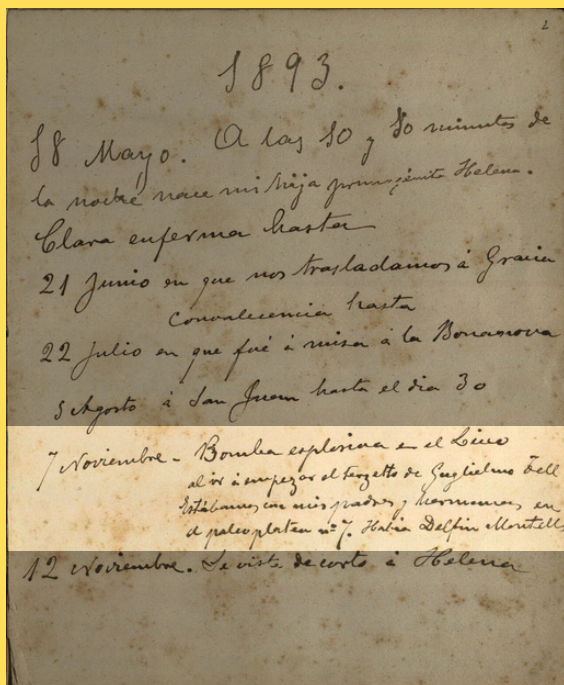 2
1893.
18 Mayo. A las 10 y 10 minutos de
la noche nace mi hija primogénita Helena.
Clara enferma hasta
21 Junio en que nos trasladamos á Gracia
convalecencia hasta
22 Julio en que fué á misa á la Bonanova
5 Agosto á San Juan hasta el dia 30
7 Noviembre - Bomba explosiva en el Liceo
al ir á empezar el terzetto de Guglielmo Tell
Estábamos con mis padres y hermanas en
el palco platea nº 7. Habia Delfin Montells
12 Noviembre. Se viste de corto á Helena